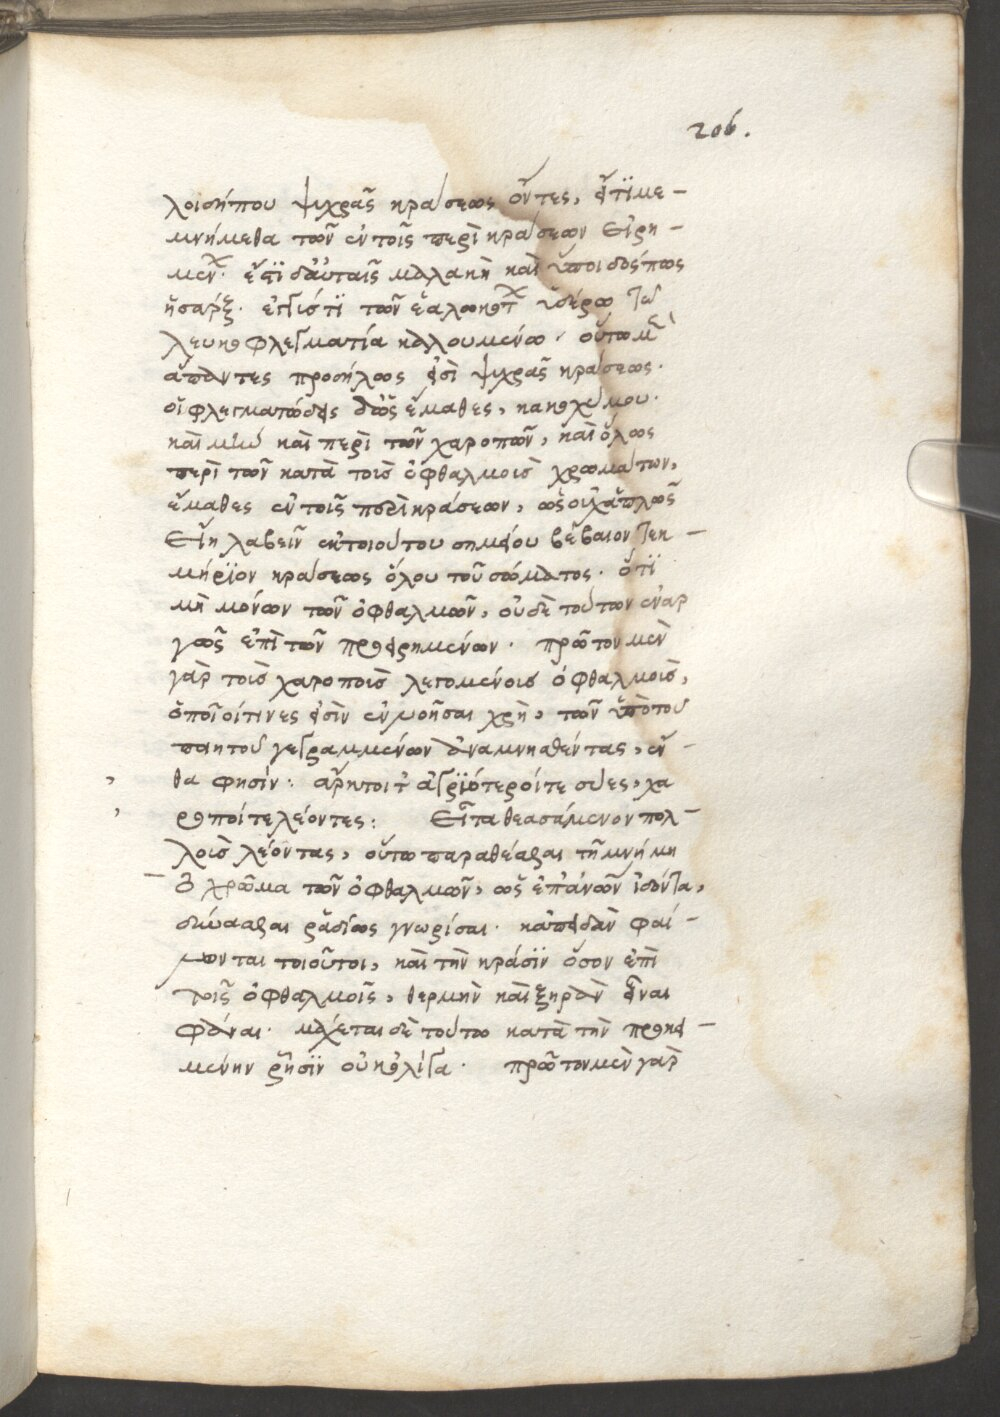 206.
λοι δήπου ψυχρᾶς κράσεως ὄντες, εἴ τι με-
μνήμεθα τῶν ἐν τοῖς περὶ κράσεων εἰρη-
μέν. ἔστι δ' αὐταῖς μαλακὴ καὶ
ἡ σάρξ.
λευκοφλεγματία καλουμένω. οὕτω μ
ἅπαντες προδήλως εἰσὶ ψυχρᾶς κράσεως.
οἱ φλεγματώδεις δ' ὡς ἔμαθες, κακοχύμου.
καὶ μὴν καὶ περὶ τῶν χαροπῶν, καὶ ὅλως
περὶ τῶν κατὰ τοὺς ὀφθαλμοὺς χρωμάτων,
ἔμαθες ἐν τοῖς περὶ κράσεων, ὡς οὐχ ἁπλῶς
εἴη λαβεῖν ἐκ τοιούτου σημείου βέβαιον τεκ-
μήριον κράσεως ὅλου τοῦ σώματος. ὅτι
μὴ μόνων τῶν ὀφθαλμῶν, οὐδὲ τούτων ἐναρ
γῶς ἐπὶ τῶν προειρημένων. πρῶτον μὲν
γὰρ τοὺς χαροποὺς λεγομένους ὀφθαλμοὺς,
ὁποῖοί τινες εἰσὶν ἐννοῆσαι χρὴ, τῶν ὑπὸ τοῦ
ποιητοῦ γεγραμμένων ἀναμνησθέντας, ἔν-
θα φησίν: ἄρκτοι τ' ἀγριότεροί τε σύες, χα
ροποί τε λέοντες: Εἶτα θεασάμενον πολ-
λοὺς λέοντας, οὕτω παραθέσθαι τῇ μνήμη
ὃ χρῶμα τῶν ὀφθαλμῶν, ὡς ἐπ' ἀνθῶν ἰδόντα,
δύνασθαι ῥαδίως γνωρίσαι. κἀπειδὰν φαί-
νωνται τοιοῦτοι, καὶ τὴν κρᾶσιν ὅσον ἐπὶ
τοῖς ὀφθαλμοῖς, θερμὴν καὶ ξηρὰν εἶναι
φάναι. μάχεται δὲ τούτω κατὰ τὴν προκει-
μένην ῥῆσιν οὐκ ὀλίγα. πρῶτον μὲν γὰρ